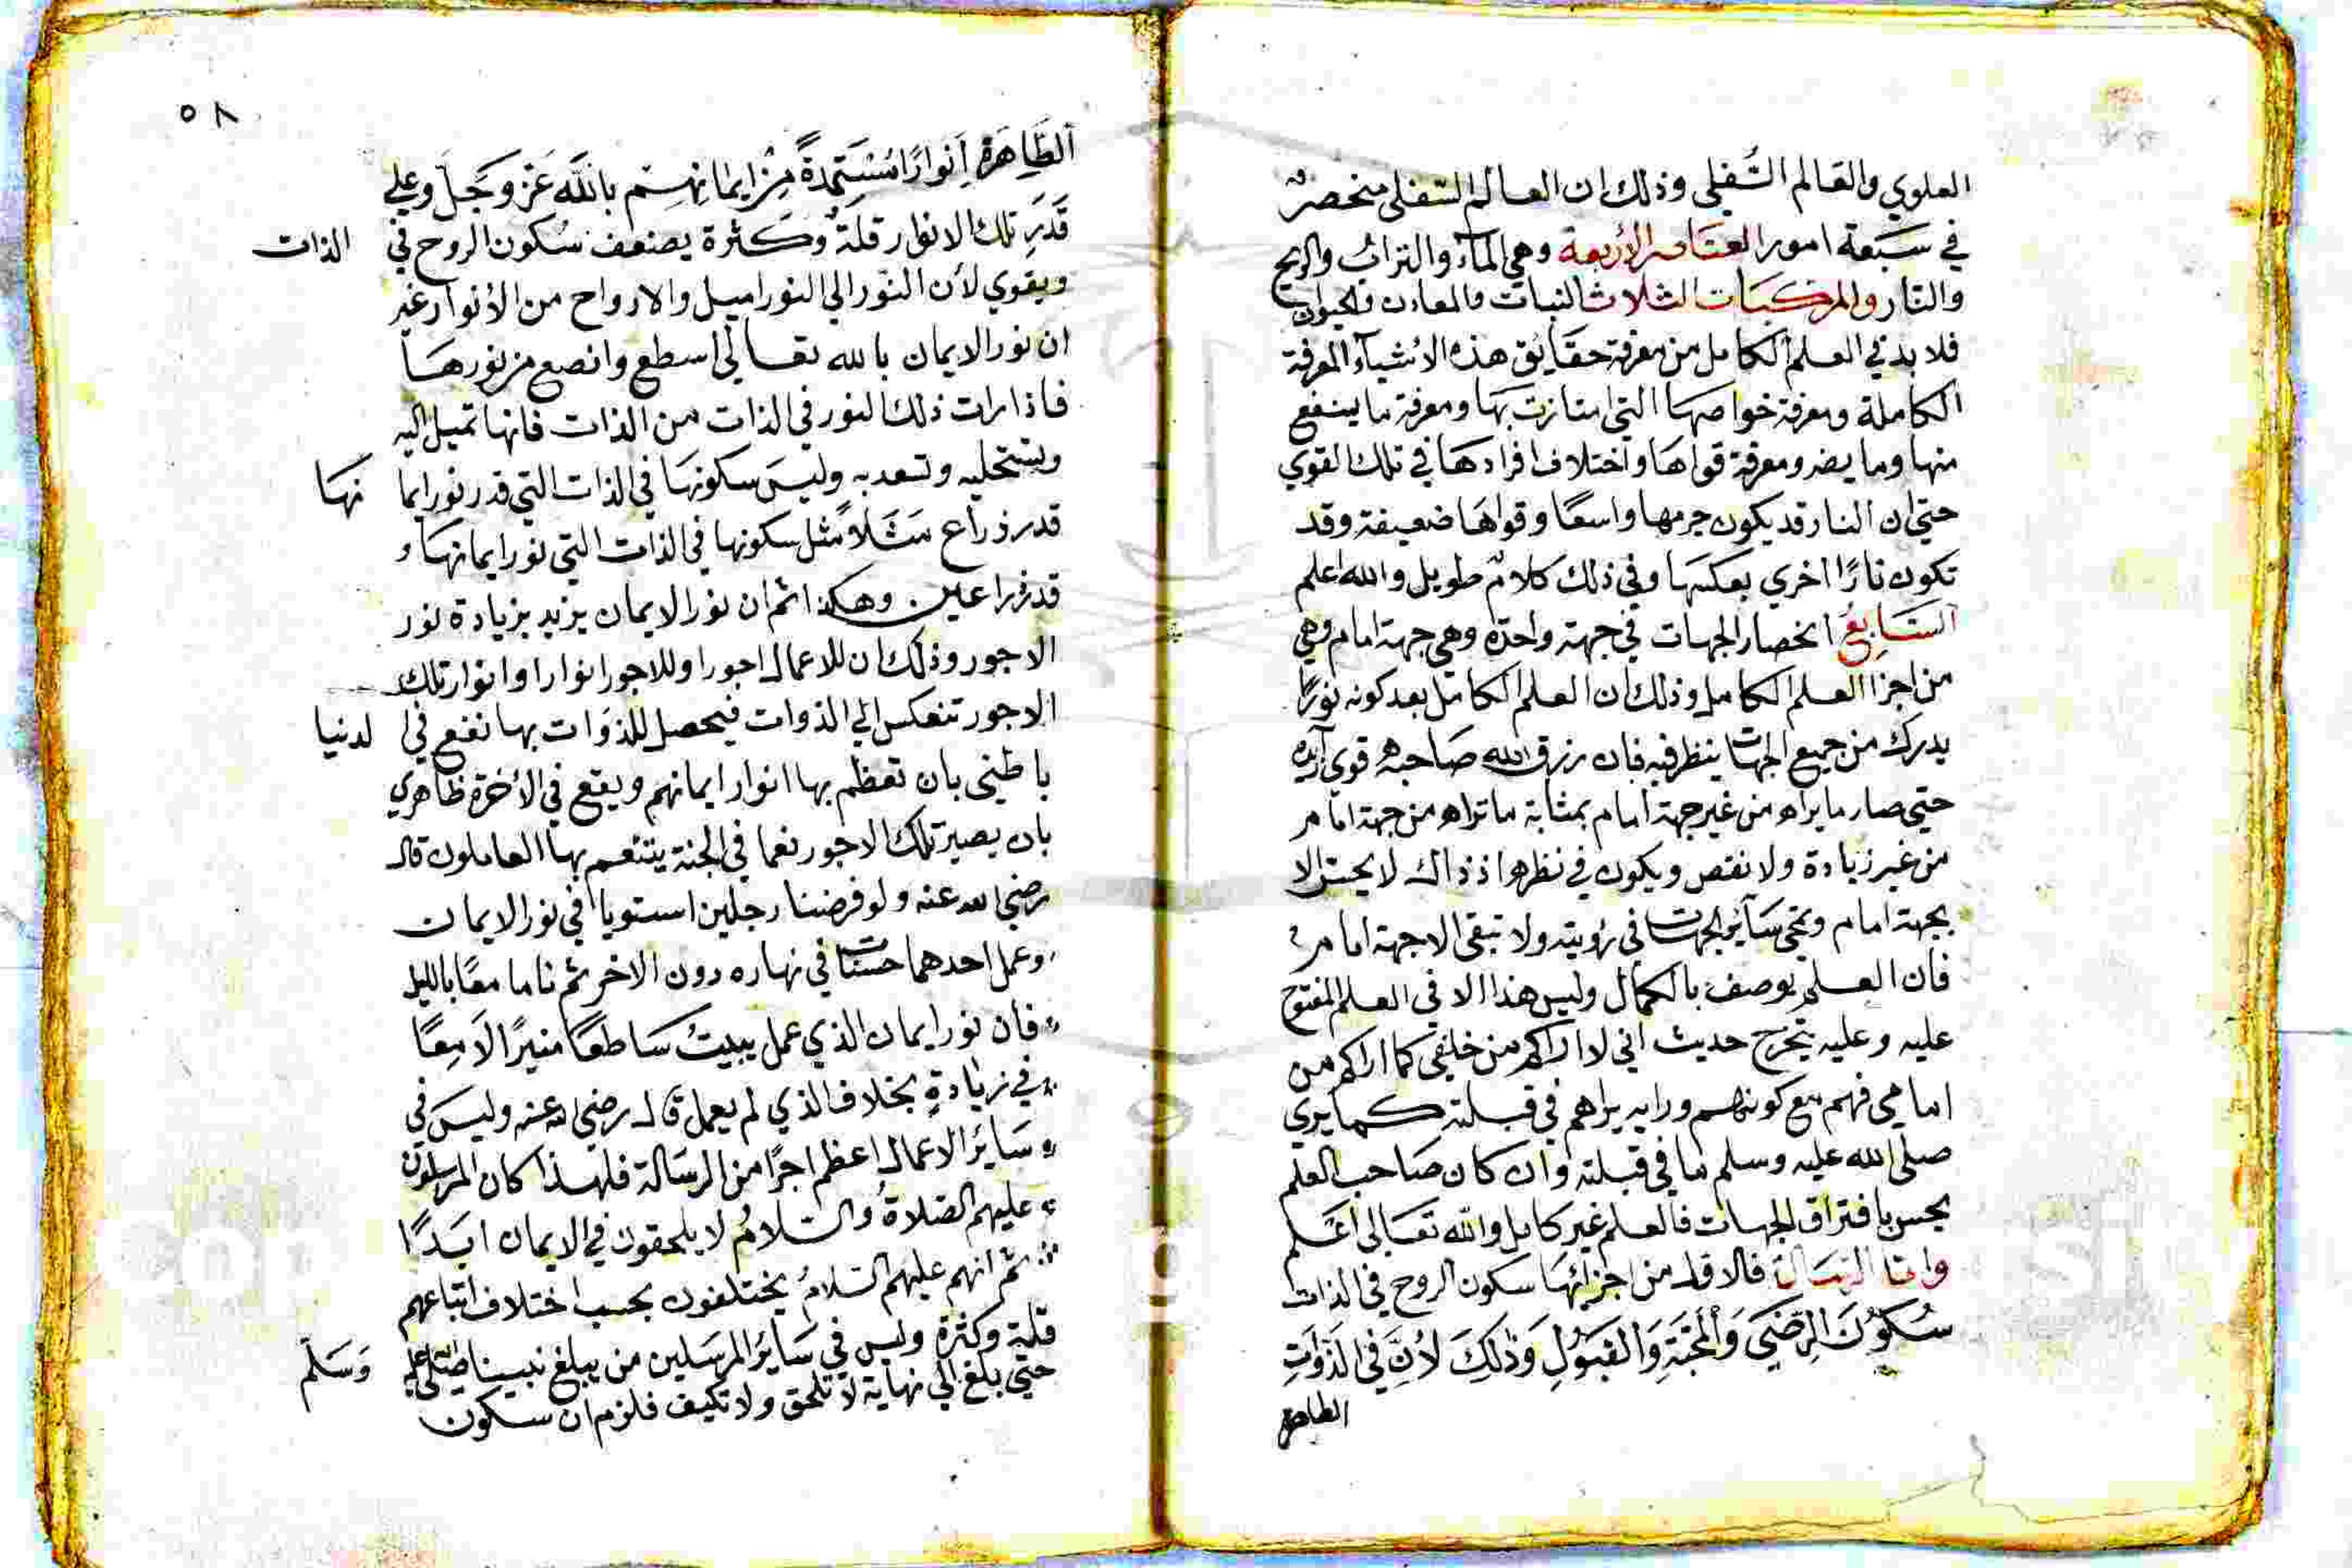 العلوي والعالم السُفلي وذلك ان العالم السفلي منحصر
في سَبعة امور العناصر الأربعة وهي الماء والتراب والريح
والنار والمركبات الثلاث النبات والمعادن والحيوان
فلا بد في العلم الكامل من معرفة حقايق هذه الاشياء المعرفة
الكاملة ومعرفة خواصها التي امتازت بها ومعرفة ما ينفع
منها وما يضر ومعرفة قواها واختلاف افرادها في تلك القوي
حتي ان النار قد يكون جرمها واسعًا وقواها ضعيفة وقد
تكون نارًا اخري بعكسها وفي ذلك كلامٌ طويل والله اعلم
السَابِعُ انحصار الجهات في جهة واحدة وهي جهة امام وهي
من اجزا العلم الكامل وذلك ان العلم الكامل بعد كونه نورًا
يدرك من جميع الجهات ينظر فيه فان رزق الله صاحبه قوي
حتي صار ما يراه من غير جهة امام بمثابة ما تراه من جهة امام
من غير زيادة ولا نقص ويكون في نظره اذ ذاك لا يحس الا
بجهة امام وتمحي ساير الجهات في رؤيته ولا تبقي الا جهة امام
فان العلم يوصف بالكمال وليس هذا الا في العلم المفتوح
عليه وعليه يتخرج حديث اني لا اراكم من خلفي كما اراكم من
امامي فهم مع كونهم ورايه يراهم في قبلته كما يري
صلي الله عليه وسلم ما في قبلته وان كان صاحب العلم
يحس بافتراق الجهات فالعلم غير كامل والله تعالى اعلم
واما الرسالة فالاول من اجزائها سكون الروح في الذات
سُكُونَ الرِضَي وَالمَحَبَّةِ وَالقَبُولِ وَذٰلِكَ لأنَّ في الذَوَاتِ
الطاهرة
٥٨
الطَّاهِرَةِ أنوارًا مُسْتَمِدةً مِنْ ايمانهِم باللَّه عَزَّ وَجَلَّ وعلي
قَدَرِ تلك الانوار قلةً وكثرة يضعف سُكون الروح في الذات
ويقوي لأن النور الي النور اميل والارواح من الأنوار غير
ان نور الايمان بالله تعالي اسطع وانصع من نورها
فاذا رات ذلك النور في الذات من الذات فانها تميل اليه
وتستحليه وتسعد به وليس سكونها في الذات التي قدر نور ايما نها
قدر ذراع مَثَلاً مثل سكونها في الذات التي نور ايمانها و
قدر ذراعين وهكذا ثم ان نور الايمان يزيد بزيادة نور
الاجور وذلك ان للاعمال اجورا وللاجور انوارا وانوار تلك
الاجور تنعكس الي الذوات فيحصل للذوَات بها نفع في لدنيا
باطني بان تعظم بها انوار ايمانهم ويقع في الأخرة ظاهري
بان يصير تلك الاجور نعما في الجنة يتنعم بها العاملون قال
رضي الله عنه ولو فرضنا رجلين استويا في نور الايمان
وعمل احدهما حسنات في نهاره دون الاخر ثم ناما معًا بالليل
فان نور ايمان الذي عمل يبيت سَاطعًا منيرًا لامِعًا
في زيادةٍ بخلاف الذي لم يعمل قال رضي الله عنه وليسَ في
سَايرُ الاعمال اعظم اجرًا من الرسَالة فلهذا كان المرسلون
عليهم الصلاةُ والسلامُ لا يلحقون في الايمان ابَدًا
ثم انهم عليهم السلامُ يختلفون بحسب اختلاف اتباعهم
قلة وكثرة وليس في سَايرُ المرسَلين من يبلغ نبينا صلى الله عليه وَسَلّم
حتي بلغ الي نهاية لا تلحق ولا تكيف فلزم ان سكون